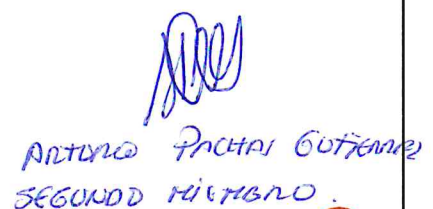 ARTURO PACHAS GUTIERREZ
SEGUNDO MIEMBRO.